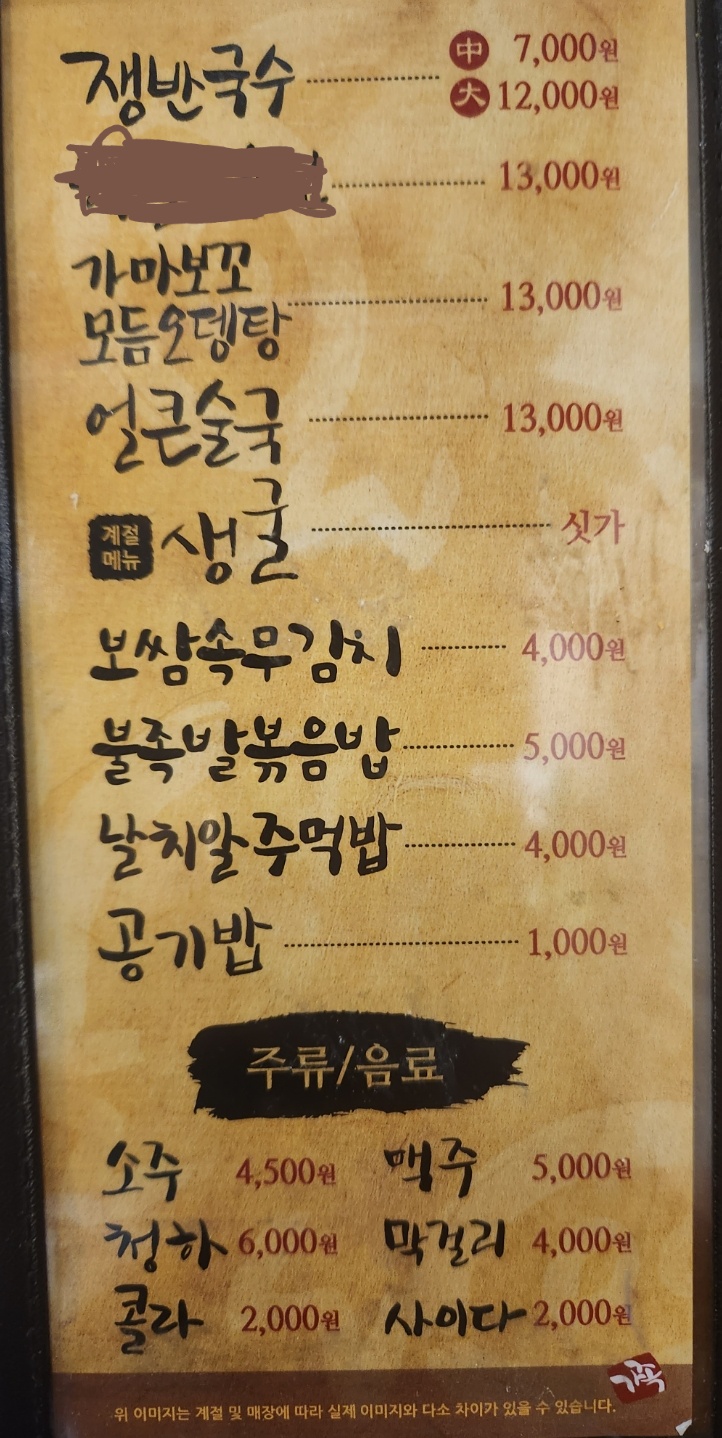 쟁반국수 中 7,000원
大 12,000원
13,000원
가마보꼬
모듬오뎅탕 13,000원
얼큰술국 13,000원
계절
메뉴 생굴 싯가
보쌈속무김치 4,000원
불족발볶음밥 5,000원
날치알주먹밥 4,000원
공기밥 1,000원
주류/음료
소주 4,500원 맥주 5,000원
청하 6,000원 막걸리 4,000원
콜라 2,000원 사이다 2,000원
가족
위 이미지는 계절 및 매장에 따라 실제 이미지와 다소 차이가 있을 수 있습니다.